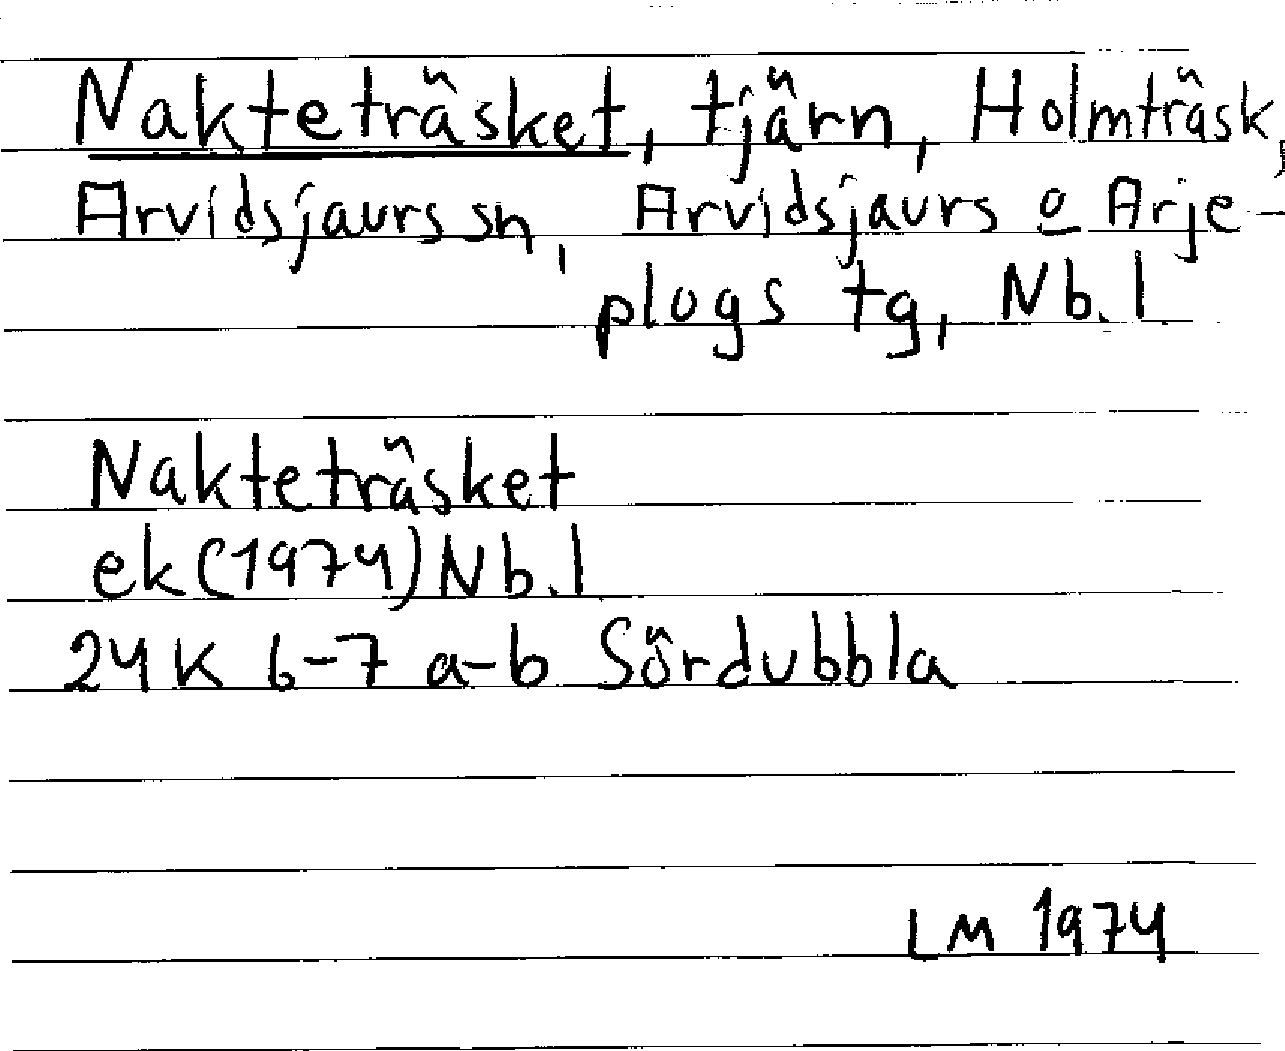 Nakteträsket, tjärn, Holmträsk,
Arvidsjaurs sn, Arvidsjaurs o Arje-
plogs tg, Nb. l
Nakteträsket
ek (1974) Nb. l
24 K 6-7 a-b Sördubbla
LM 1974